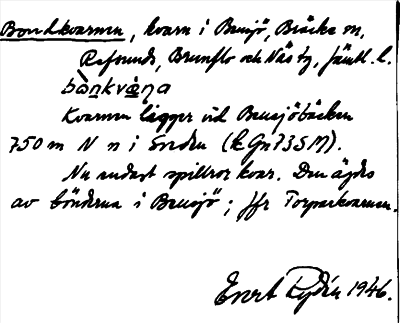 Bondkvarnen, kvarn i Bensjö, Bräcke m,
Refsunds, Brunflo och Näs tg, Jämtl. l.
bànkvæ̀ɳa
Kvarnen ligger vid Bensjöbäcken
750 m N n i Sneden (k Gn 735 M).
Nu endast spillror kvar. Den ägdes
av bönderna i Bensjö; jfr Torparkvarnen.
Evert Rydén 1946.